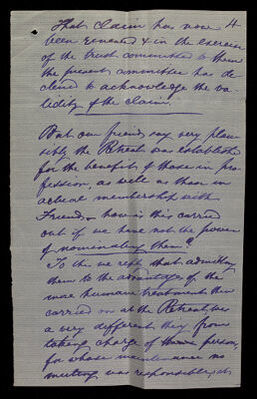 That claim has now 4
been renewed & in the exercise
of the trust committed to them
the present committee has de
clined to acknowledge the va
lidity of the claim.
But our friends say very plau
sibly the Retreat was established
for the benefit of those in pro
fession, as well as those in
actual membership with
Friends, & how is this carried
out if we have not the power
of nominating them?
To this we reply that admitting
them to the advantages of the
more humane treatment then
carried on at the Retreat, was
a very different thing from
taking charge of those persons,
for whose maintenance no
meeting was responsible, &